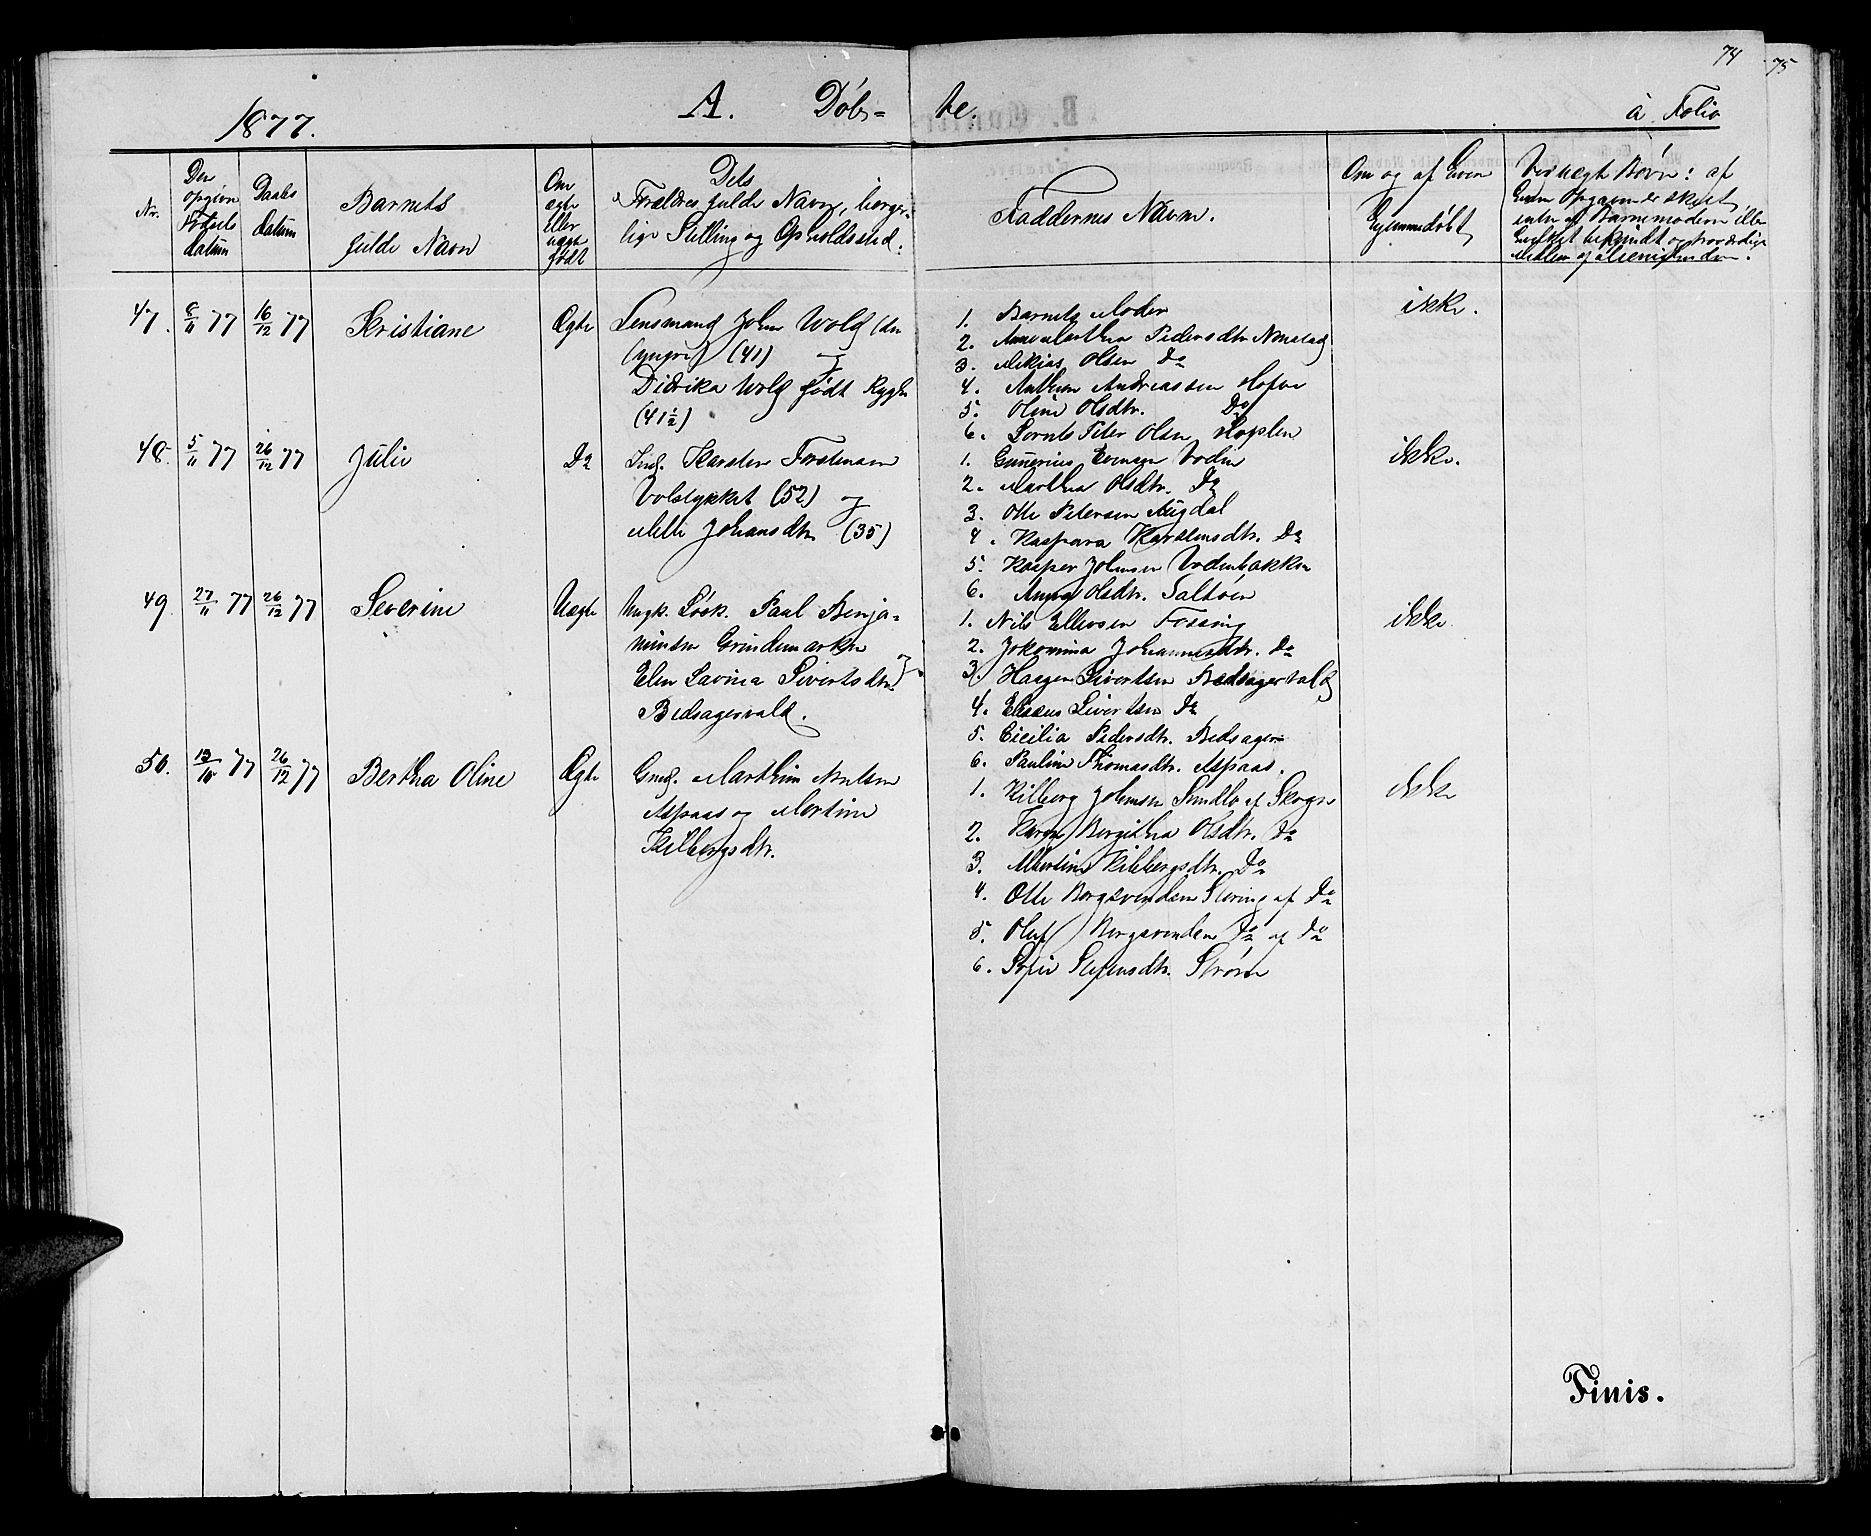 74
75
1877.
A. Døb-
te.
à Folio
Nr.
Den opgivne Fødsels datum
Daabs datum
Barnets
fulde Navn
Om ægte eller uægte født
Dets
Forældres fulde Navn, borger-
lige Stilling og Opholdssted.
Faddernes Navne.
Om og af Hvem
Hjemmedøbt
Ved uægte Børn: af
47. 8/11 77 16/12 77 Kristiane Ægte
Lensmand John Wold (den
yngre) (41) og
Didrika Wold født Rygh
(41½)
1. Barnets Moder
2. Anne Martha Pedersdtr. Nonstad
3. Mikias Olsen Do
4. Anthon Andreassen
5. Oline Olsdtr. Do
6. Lornts Peter Olsen Hoplen
ikke.
48. 5/11 77 26/12 77 Julie Do
Inds. Karsten Forstensen
Volstykket (52) og
Mille Johansdtr. (35)
1. Gunerius Evensen Voden
2. Martha Olsdtr. Do
3. Otte Petersen Augdal
4. Kaspara Karstensdtr. Do
5. Kasper Johnsen Vodenbakken
6. Anna Olsdtr. Saltøen
ikke.
49. 27/11 77 26/12 77 Severine Uægte
Ungk. Løsk. Paul Benja-
minsen Grindemarken og
Elen Lavina Sivertsdtr.
Bedsagervald.
1. Nils Ellevsen Fossing
2. Jokomina Johannesdtr. Do
3. Haagen Sivertsen Bedsagervald
4. Eliseus Sivertsen Do
5. Cicilia Pedersdtr. Bedsager
6. Pauline Thomasdtr. Aspaas.
ikke
50. 13/10 77 26/12 77 Bertha Oline Ægte
Gmd. Marthin Nilsen
Aspaas og Mortine
Kilbergsdtr.
1. Kilberg Johnsen Sundlo af Skogn
2. Karen Bergitha Olsdtr. Do
3. Albertine Kilbergsdtr. Do
4. Otte Bergsvendsen Slering af Do
5. Oluf Bergsvendsen Do af Do
6. Sofie Stefensdtr. Strøm
ikke
Finis.